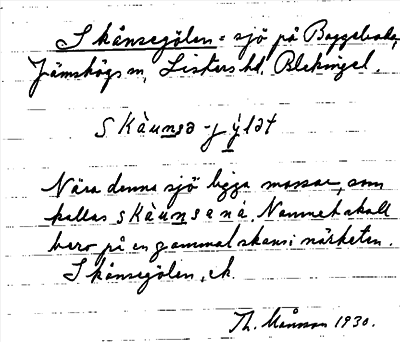 Skånsegölen = sjö på Baggeboda,
Jämshögs sn, Listers hd, Blekinge l.
skàunsa-jýlət
Nära denna sjö ligga mossar, som
kallas skàunsəna. Namnet skall
bero på en gammal skans i närheten.
Skånsegölen, ek.
Th. Månsson 1930.